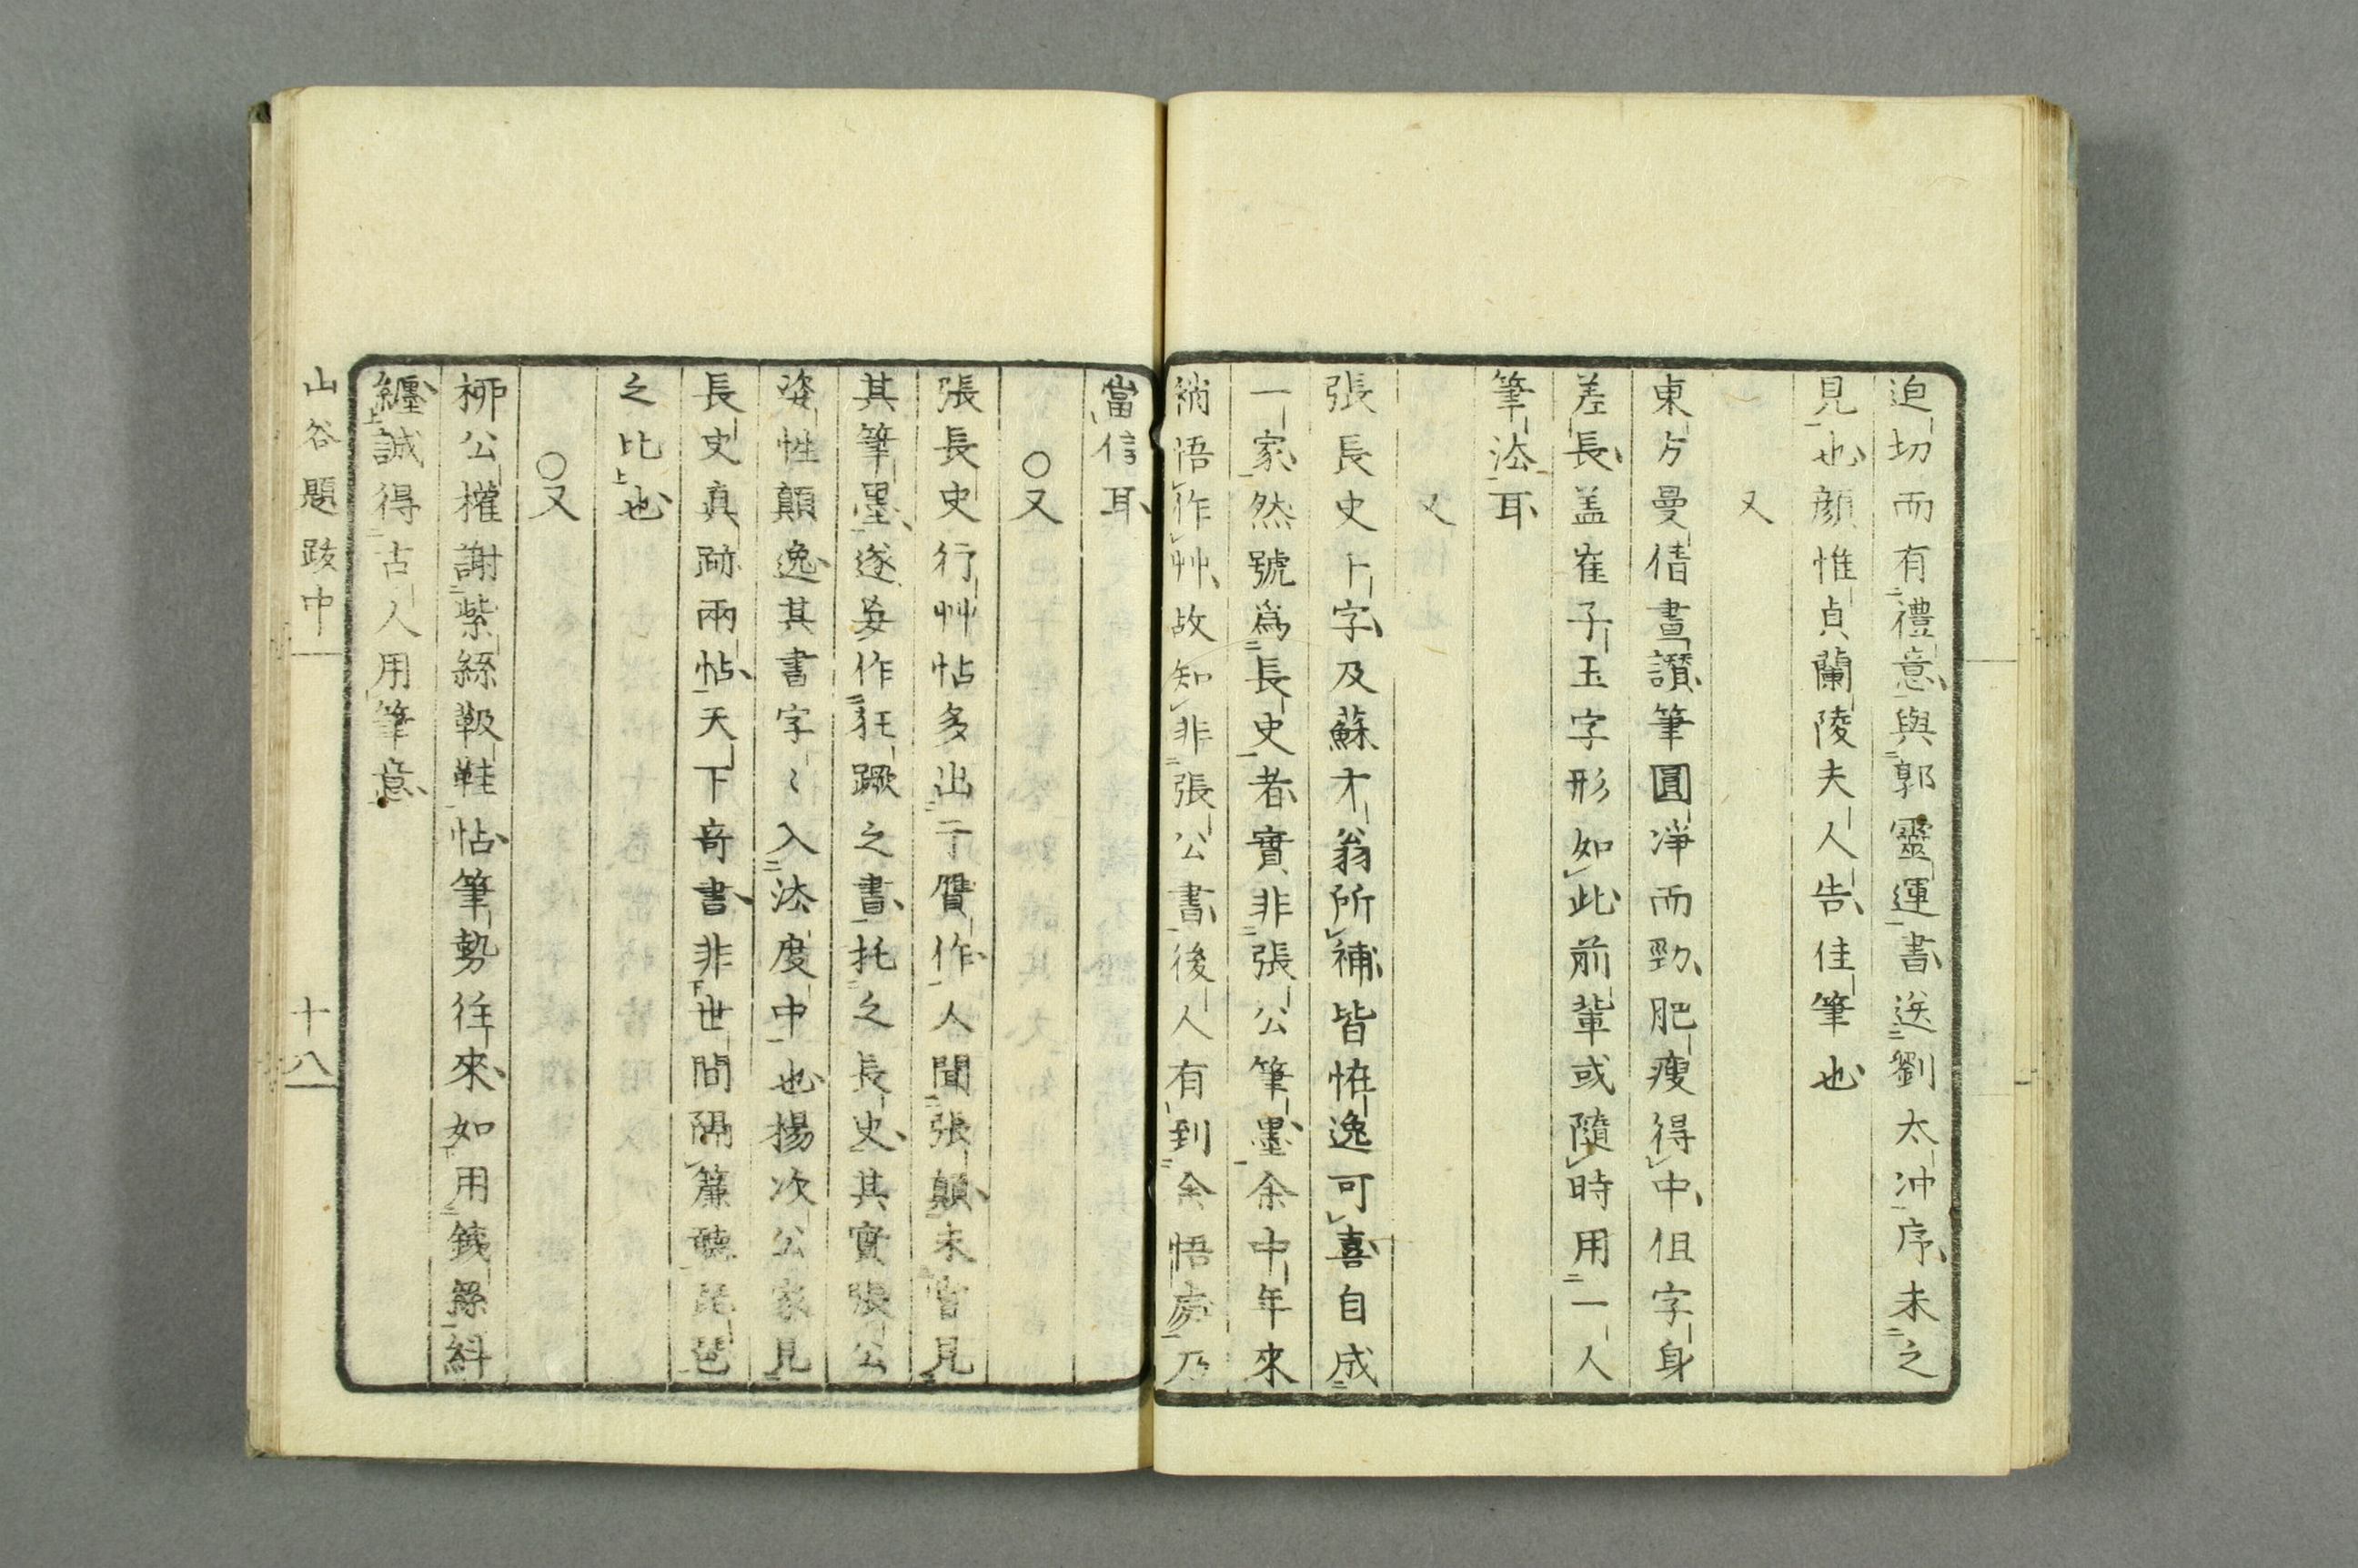 迫切而有禮意與郭靈運書送劉太冲序未之
見也顔惟貞蘭陵夫人告佳筆也
又
東方曼倩畫讃筆圓淨而勁肥瘦得中但字身
差長盖崔子玉字形如此前輩或隨時用一人
筆法耳
又
張長史卜字及蘇才翁所補皆恠逸可喜自成
一家然號爲長史者實非張公筆墨余中年來
稍悟作艸故知非張公書後人有到余悟處乃
當信耳
○又
張長史行艸帖多出于贋作人聞張顛未甞見
其筆墨遂妄作狂蹶之書托之長史其實張公
姿性顛逸其書字〻入法度中也楊次公家見
長史真跡兩帖天下奇書非世間隔簾聽琵琶
之比也
○又
栁公權謝紫絲靸鞋帖筆勢往來如用鐵絲糾
纏誠得古人用筆意
山谷題跋中
十八